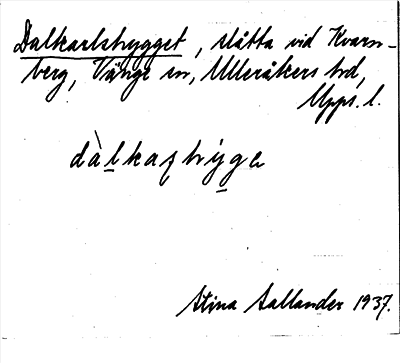 Dalkarlshygget, slåtta vid Kvarn-
berg, Vänge sn, Ulleråkers hd,
Upps. l.
dàlkaʂhýgə
Stina Sallander 1937.